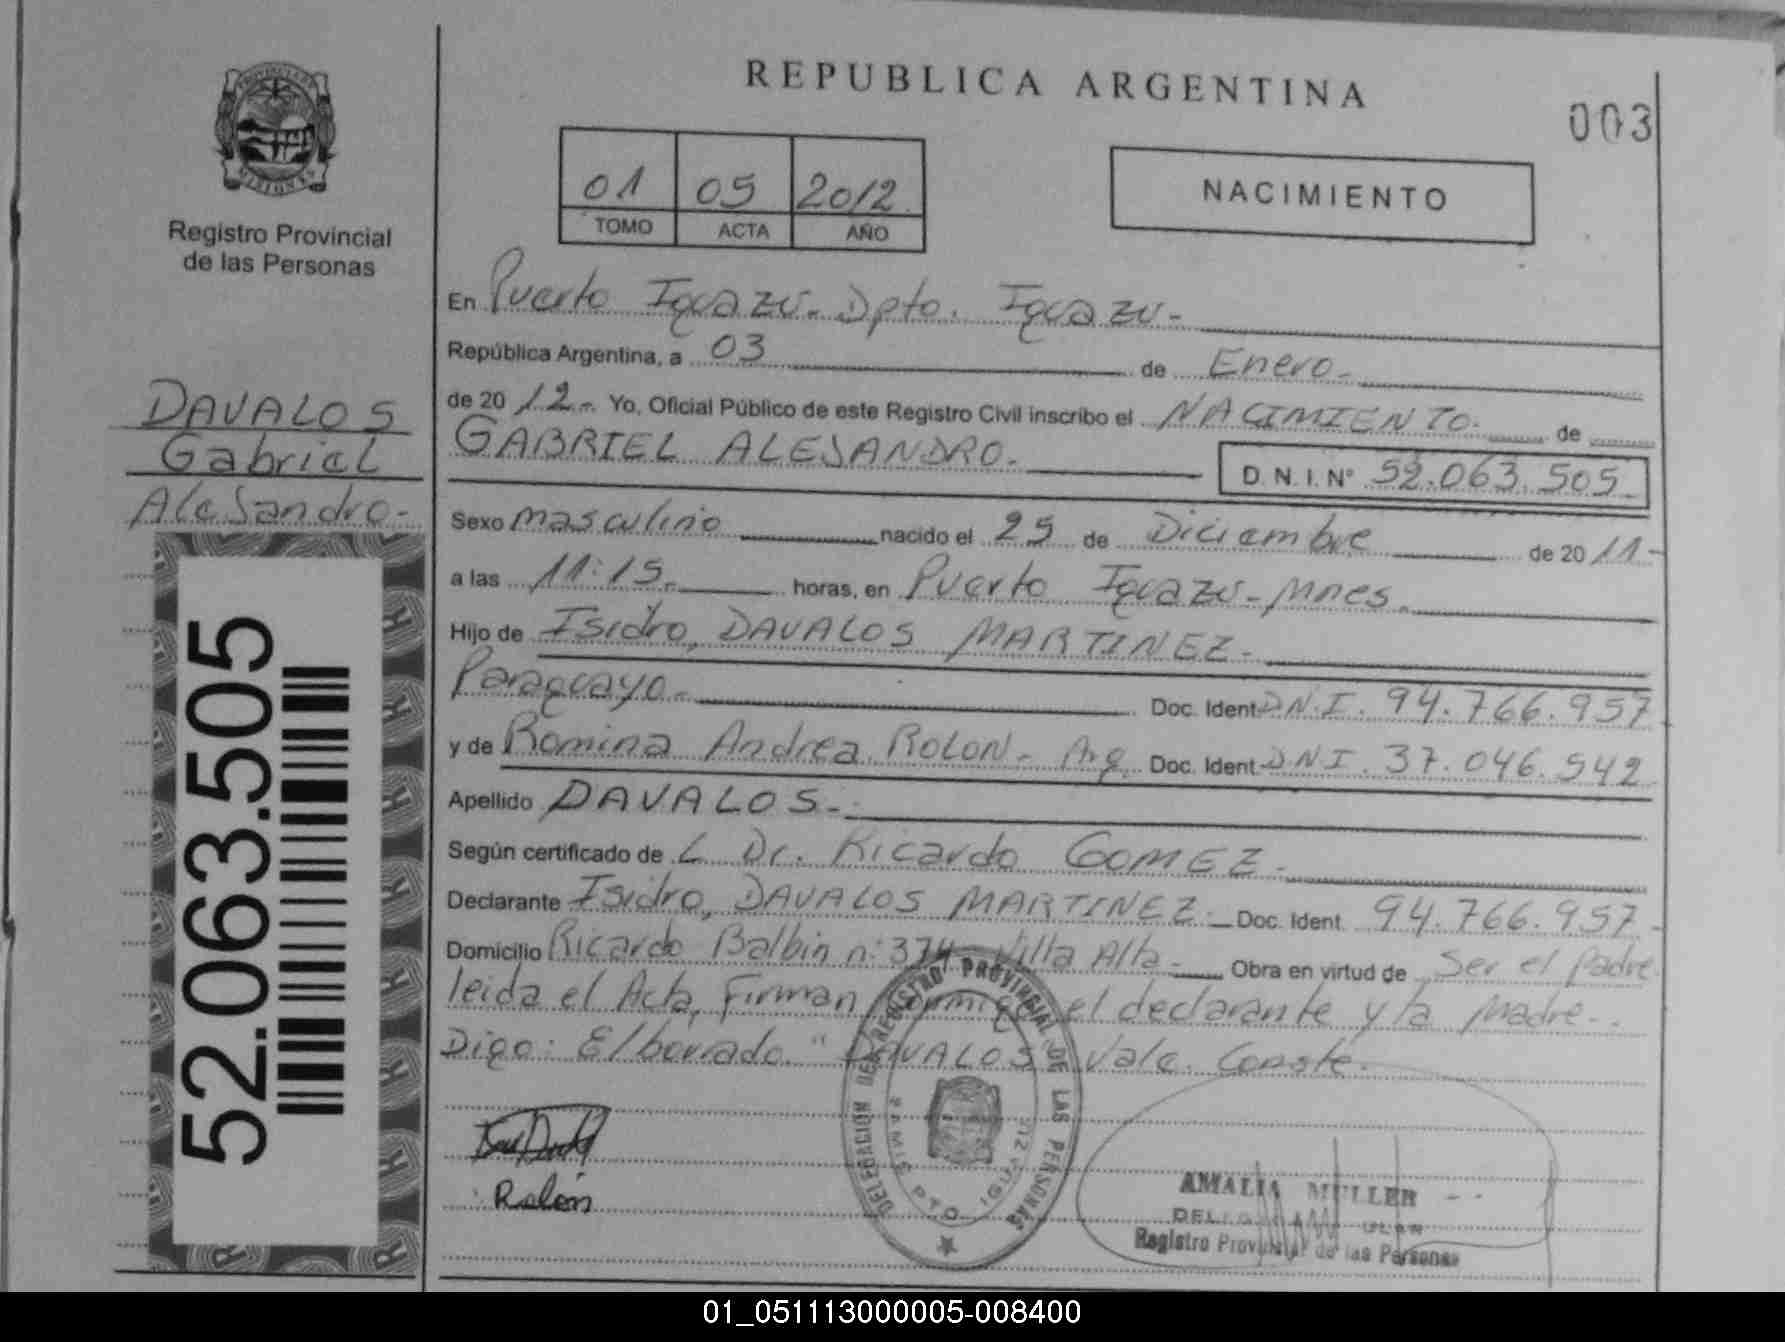 REPUBLICA ARGENTINA
003
PROVINCIA DE MISIONES
Registro Provincial
de las Personas
01 05 2012
TOMO ACTA AÑO
NACIMIENTO
En Puerto Iguazú - Dpto. Iguazú -
República Argentina, a 03 de Enero -
de 20 12 - Yo, Oficial Público de este Registro Civil inscribo el NACIMIENTO - de
GABRIEL ALEJANDRO -
D. N. I. N° 52.063.505
DAVALOS
Gabriel
Alejandro -
Sexo masculino nacido el 25 de Diciembre de 20 11 -
a las 11:15 - horas, en Puerto Iguazú - Mnes.
Hijo de Isidro, DAVALOS MARTINEZ -
Paraguayo - Doc. Ident. D.N.I. 94.766.957
y de Romina Andrea ROLON - Arg. Doc. Ident. DNI. 37.046.542
Apellido DAVALOS -
Según certificado de L Dr. Ricardo GOMEZ -
Declarante Isidro, DAVALOS MARTINEZ - Doc. Ident. 94.766.957 -
Domicilio Ricardo Balbin n: 374 - Villa Alta - Obra en virtud de Ser el padre
leida el Acta, Firman conmigo el declarante y la Madre -
Digo: El borrado "DAVALOS" Vale. Conste.
52.063.505
Rolón
DELEGACIÓN DEL REGISTRO PROVINCIAL DE LAS PERSONAS
PTO. IGUAZU
AMALIA MULLER
Registro Provincial de las Personas
01_051113000005-008400